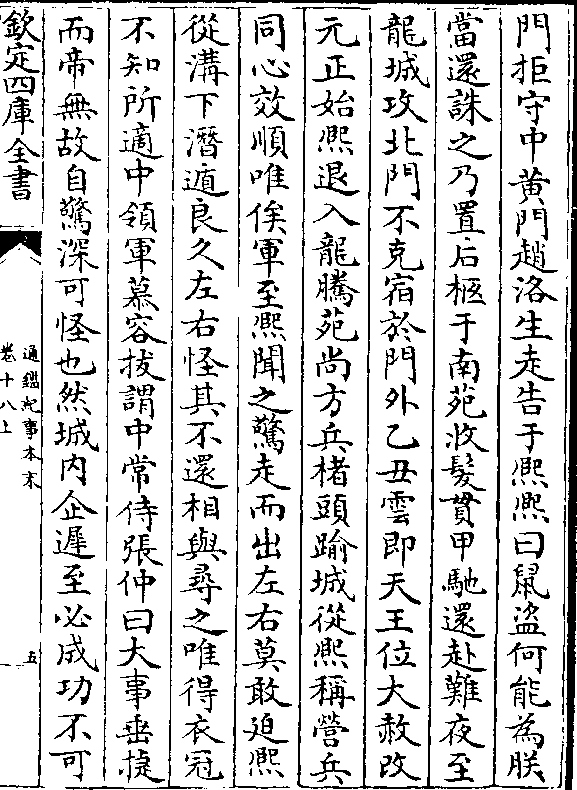 門拒守中黄門趙洛生走告于熙熙曰鼠盗何能為朕
當還誅之乃置后柩于南苑收髮貫甲馳還赴難夜至
龍城攻北門不克宿於門外乙丑雲即天王位大赦改
元正始熙退入龍騰苑尚方兵褚頭踰城從熙稱營兵
同心效順唯俟軍至熙聞之驚走而出左右莫敢迫熙
從溝下潛遁良久左右怪其不還相與尋之唯得衣冠
不知所適中領軍慕容拔謂中常侍張仲曰大事垂捷
而帝無故自驚深可怪也然城内企遲至必成功不可
欽定四庫全書
通鑑紀事本末
卷十八上
五